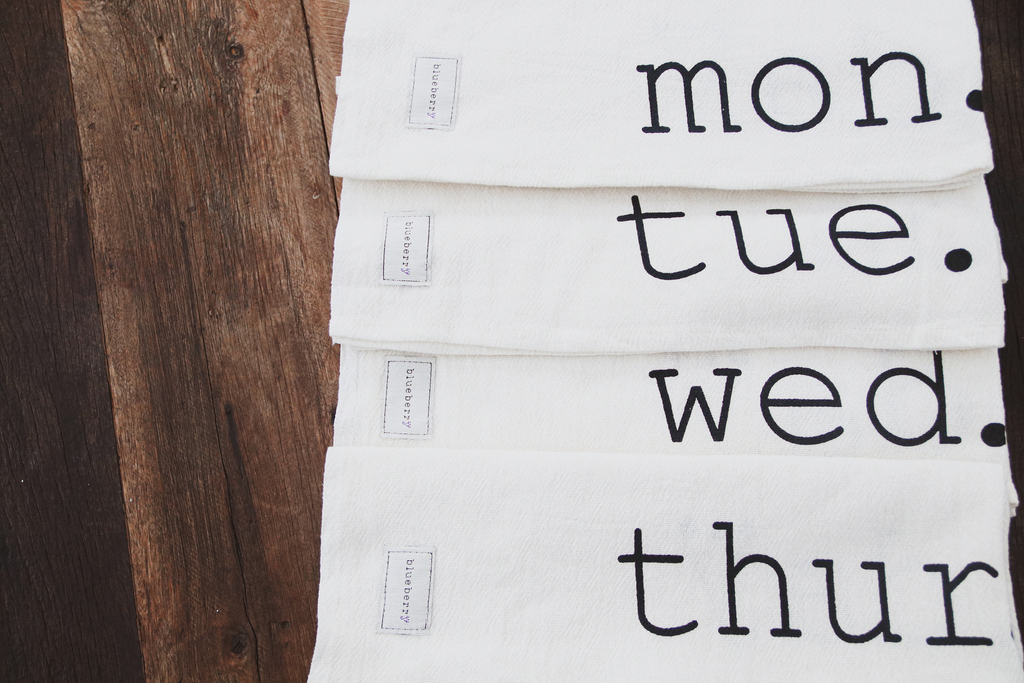 blueberry
mon.
blueberry
tue.
blueberry
wed.
blueberry
thur